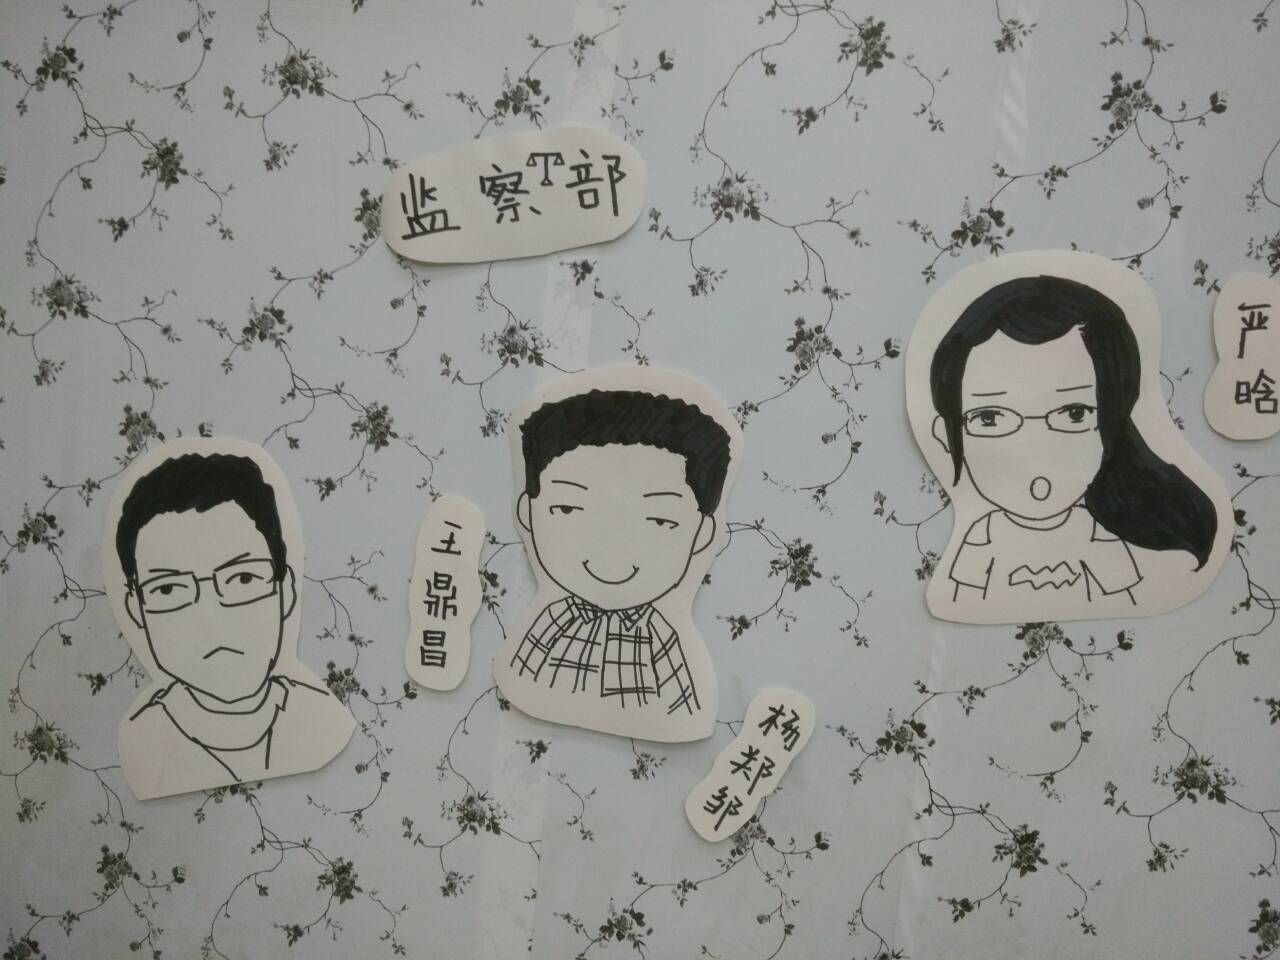 监察部
王鼎昌
杨郑邹
严晗